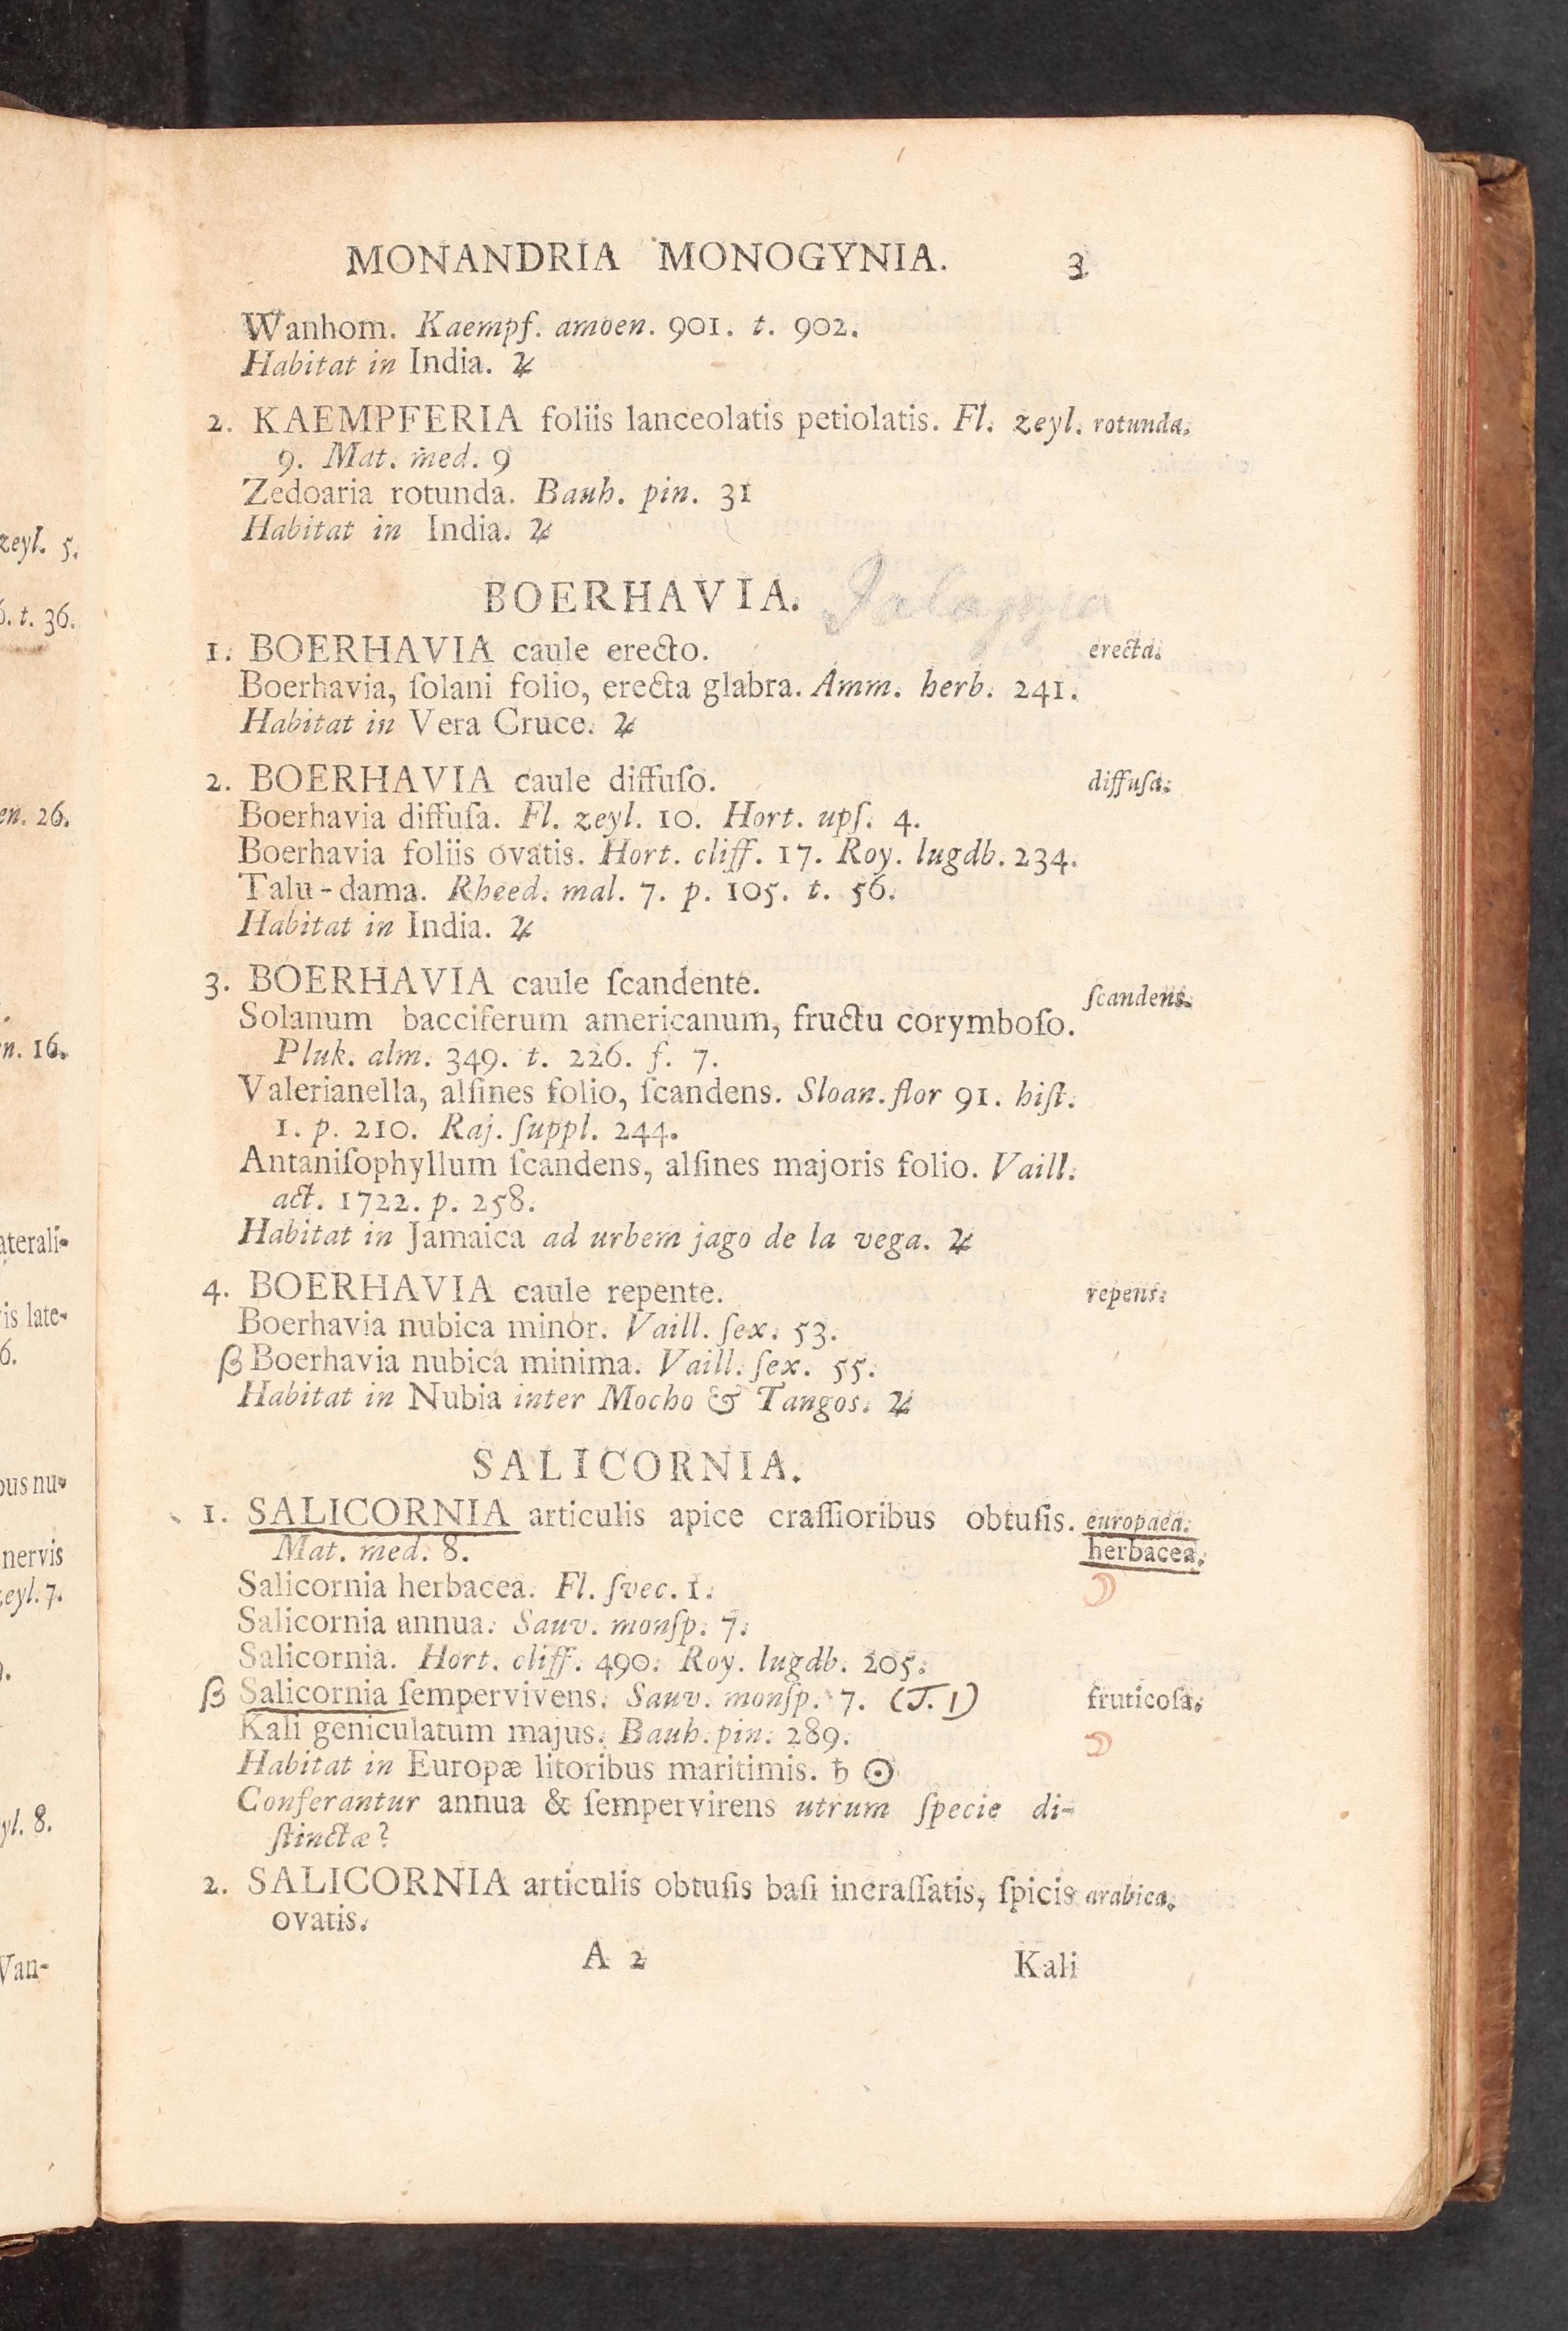 MONANDRIA MONOGYNIA. 3
Wanhom. Kaempf. amoen. 901. t. 902.
Habitat in India. ♃
2. KAEMPFERIA foliis lanceolatis petiolatis. Fl. zeyl. rotunda.
9. Mat. med. 9
Zedoaria rotunda. Bauh. pin. 31
Habitat in India. ♃
BOERHAVIA.
1. BOERHAVIA caule erecto. erecta.
Boerhavia, ſolani folio, erecta glabra. Amm. herb. 241.
Habitat in Vera Cruce. ♃
2. BOERHAVIA caule diffuſo. diffuſa.
Boerhavia diffuſa. Fl. zeyl. 10. Hort. upſ. 4.
Boerhavia foliis ovatis. Hort. cliff. 17. Roy. lugdb. 234.
Talu-dama. Rheed. mal. 7. p. 105. t. 56.
Habitat in India. ♃
3. BOERHAVIA caule ſcandente. ſcandens.
Solanum bacciferum americanum, fructu corymboſo.
Pluk. alm. 349. t. 226. f. 7.
Valerianella, alſines folio, ſcandens. Sloan. flor 91. hiſt.
1. p. 210. Raj. ſuppl. 244.
Antaniſophyllum ſcandens, alſines majoris folio. Vaill.
act. 1722. p. 258.
Habitat in Jamaica ad urbem jago de la vega. ♃
4. BOERHAVIA caule repente. repens.
Boerhavia nubica minor. Vaill. ſex. 53.
β Boerhavia nubica minima. Vaill. ſex. 55.
Habitat in Nubia inter Mocho & Tangos. ♃
SALICORNIA.
1. SALICORNIA articulis apice craſſioribus obtuſis. europaea.
Mat. med. 8. herbacea.
Salicornia herbacea. Fl. ſvec. 1.
Salicornia annua. Sauv. monſp. 7.
Salicornia. Hort. cliff. 490. Roy. lugdb. 205.
β Salicornia ſempervivens. Sauv. monſp. 7. (T. 1) fruticoſa.
Kali geniculatum majus. Bauh. pin. 289.
Habitat in Europæ litoribus maritimis. ♄ ☉
Conferantur annua & ſempervirens utrum ſpecie di-
ſtinctæ?
2. SALICORNIA articulis obtuſis baſi incraſſatis, ſpicis arabica.
ovatis.
A 2 Kali
zeyl. 5.
t. 36.
26.
16.
aterali-
is late-
6.
nervis
zeyl. 7.
yl. 8.
Van-